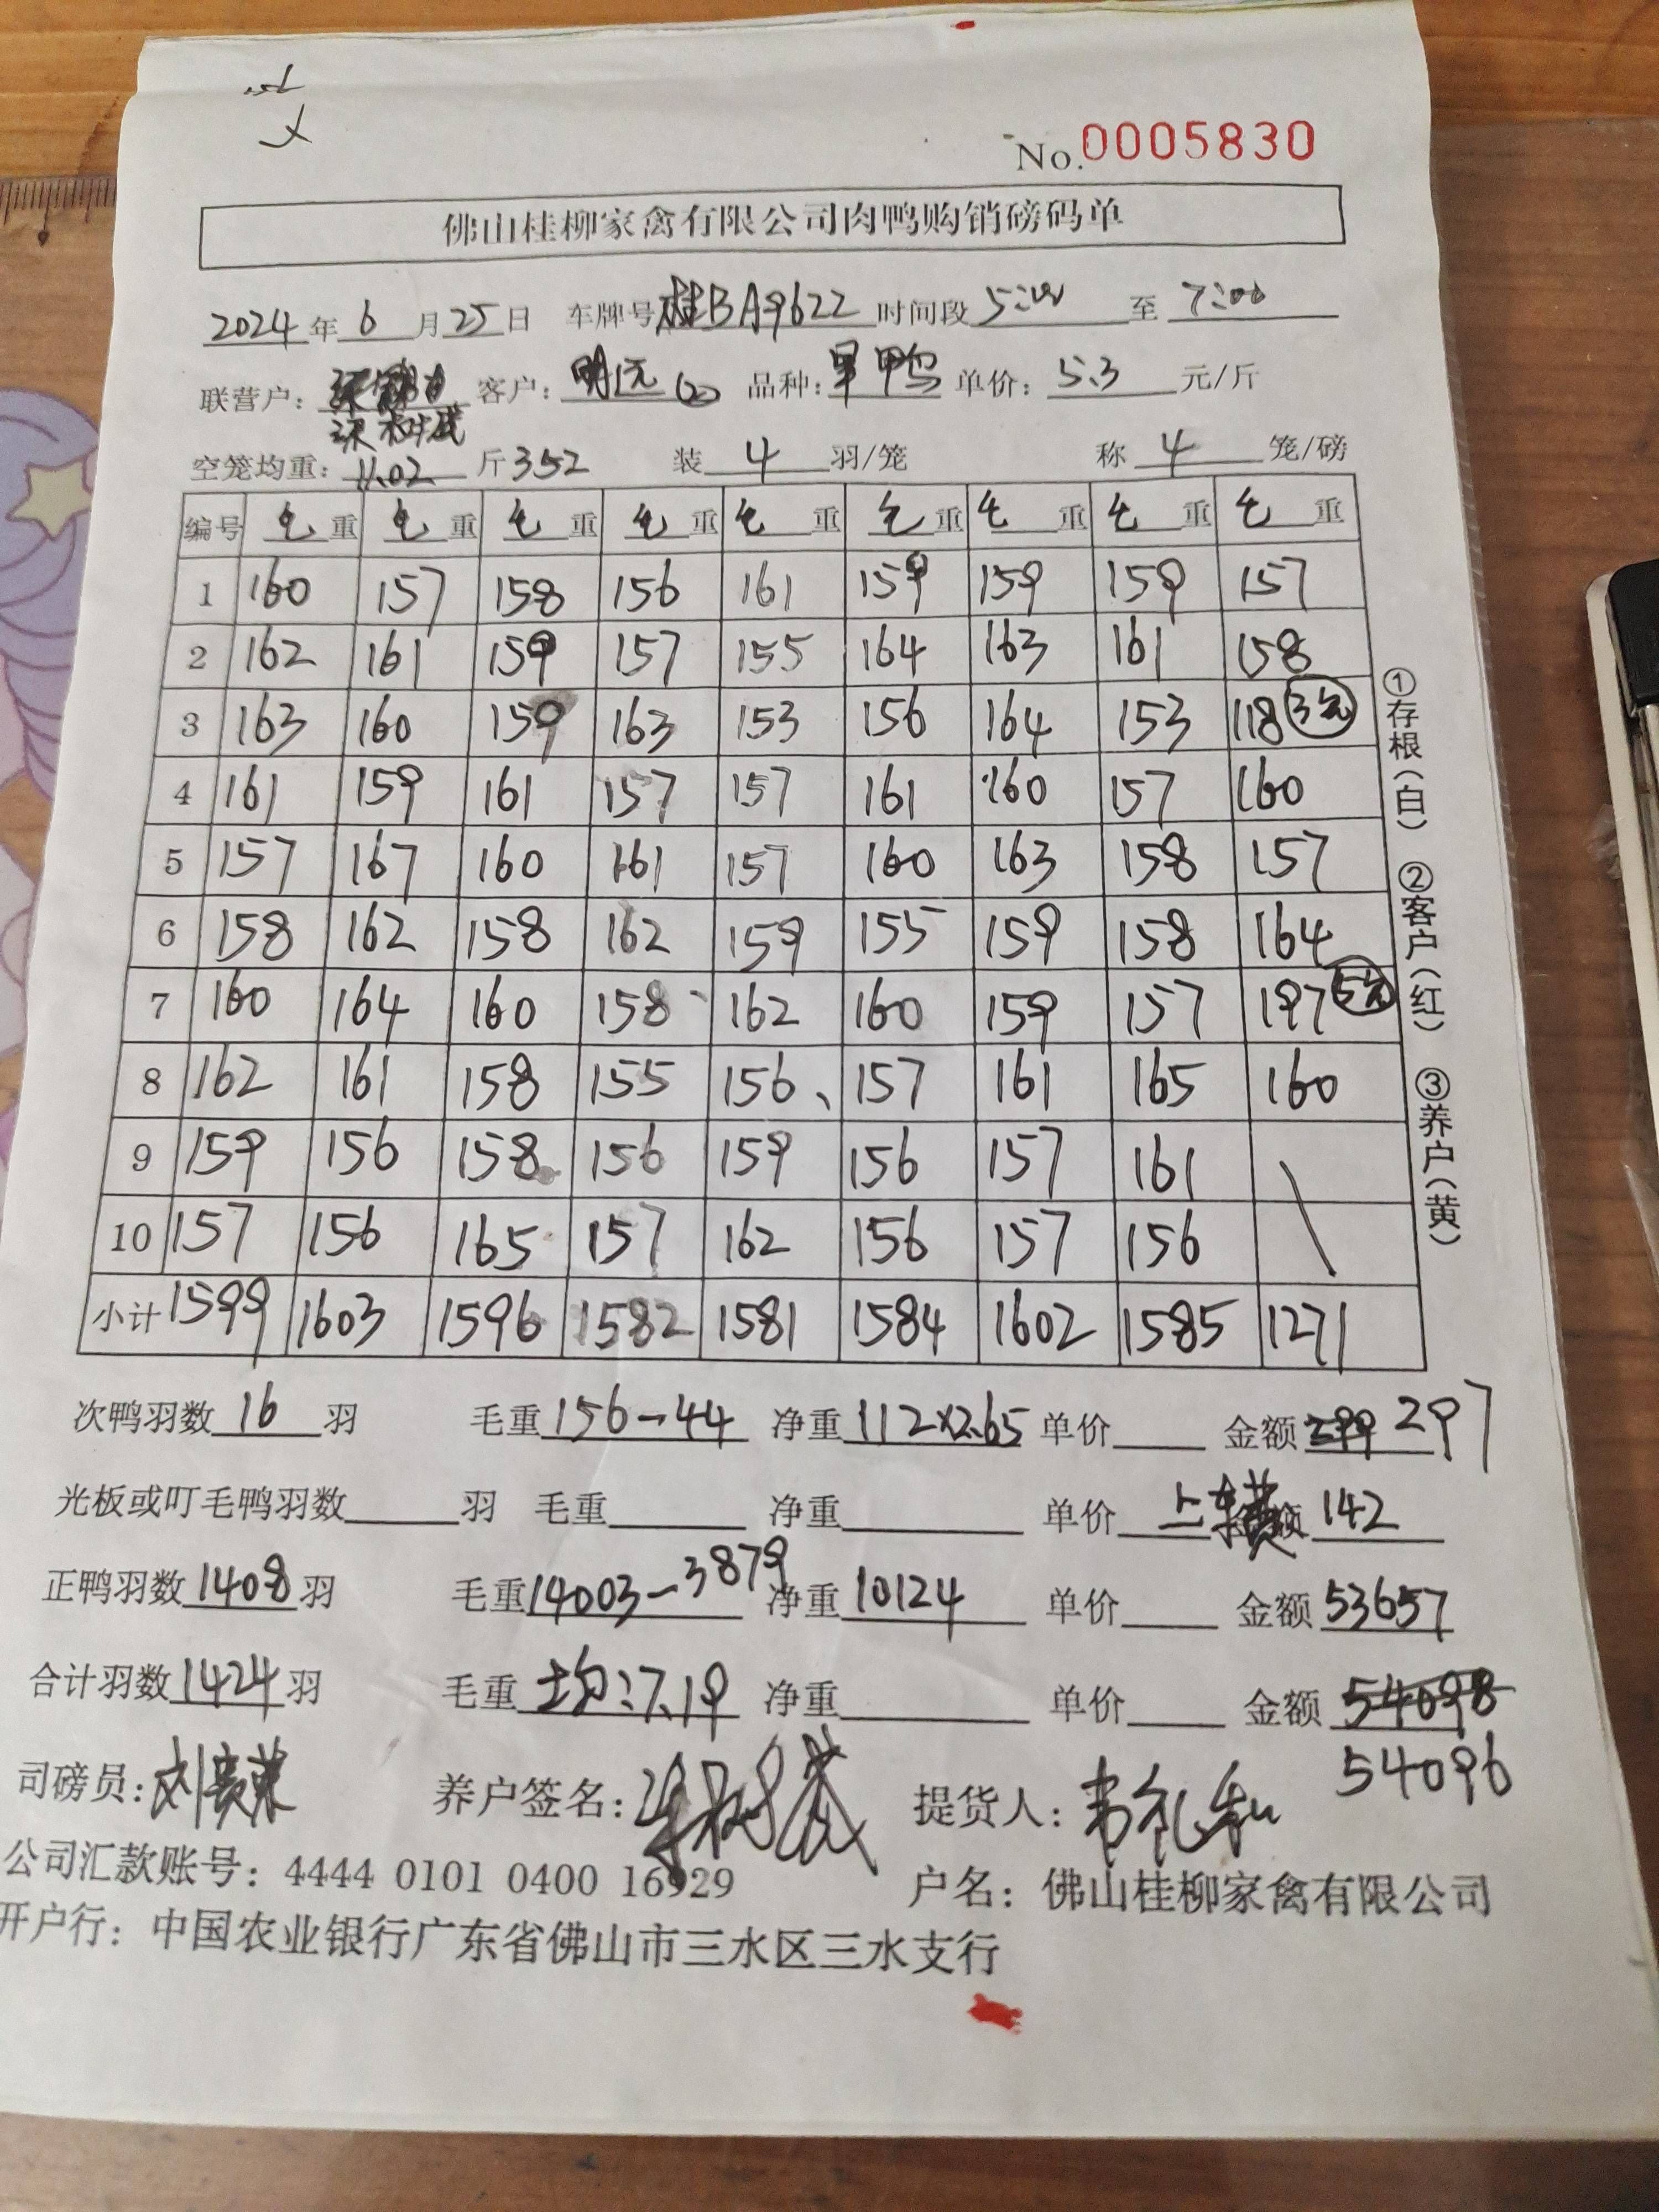 No.0005830
佛山桂柳家禽有限公司肉鸭购销磅码单
2024年6月25日 车牌号桂BA9622 时间段5:00至7:00
联营户: 客户:明远 品种:旱鸭 单价:5.3元/斤
空笼均重:11.02斤352 装4羽/笼 称4笼/磅
编号 毛重 毛重 毛重 毛重 毛重 毛重 毛重 毛重 毛重
1 160 157 158 156 161 159 159 159 157
2 162 161 159 157 155 164 163 161 158
3 163 160 159 163 153 156 164 153 118 3笼
4 161 159 161 157 157 161 160 157 160
5 157 167 160 161 157 160 163 158 157
6 158 162 158 162 159 155 159 158 164
7 160 164 160 158 162 160 159 157 197 5笼
8 162 161 158 155 156 157 161 165 160
9 159 156 158 156 159 156 157 161
10 157 156 165 157 162 156 157 156
小计 1599 1603 1596 1582 1581 1584 1602 1585 1271
次鸭羽数16羽 毛重156-44 净重112×2.65 单价 金额299 297
光板或叮毛鸭羽数 羽 毛重 净重 单价 上车费 142
正鸭羽数1408羽 毛重14003-3879 净重10124 单价 金额53657
合计羽数1424羽 毛重 均:7.19 净重 单价 金额54098
54096
司磅员: 养户签名: 提货人:韦礼和
公司汇款账号:4444 0101 0400 16929 户名:佛山桂柳家禽有限公司
开户行:中国农业银行广东省佛山市三水区三水支行
①存根(白) ②客户(红) ③养户(黄)